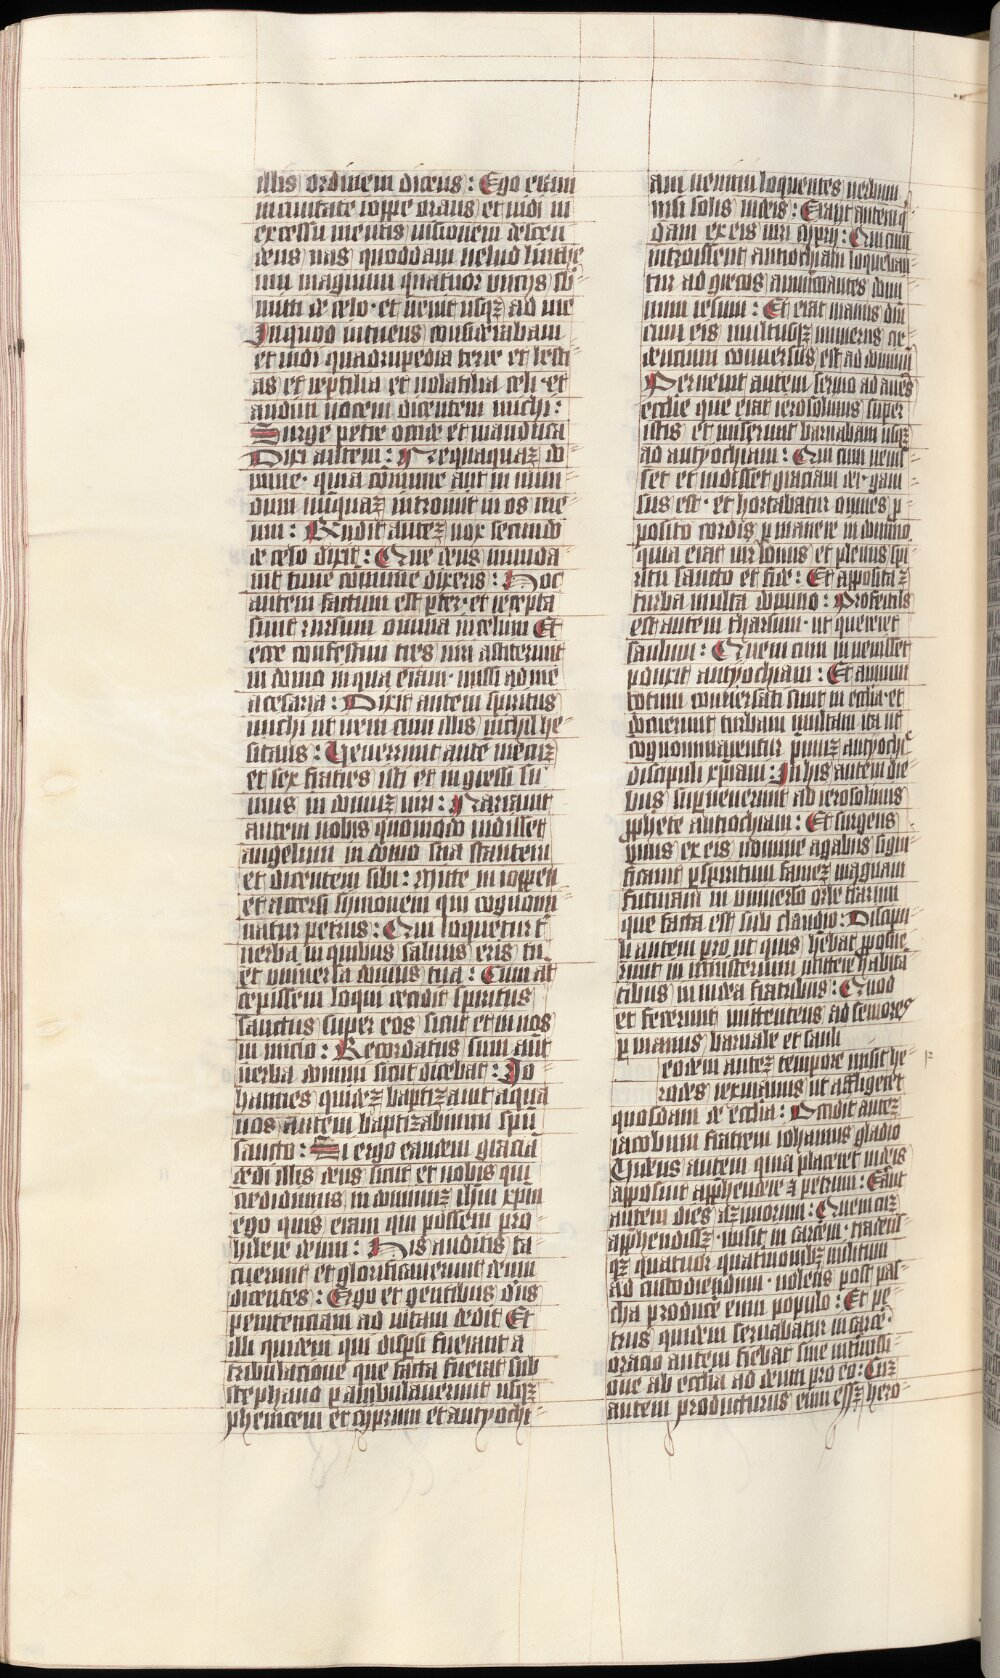 illis ordinem dicens: Ego eram
in civitate ioppe orans et vidi in
excessu mentis visionem descen
dens vas quoddam velud linthe
um magnum quatuor inicijs sū
mitti de celo. et venit usqꝫ ad me
In quod intuens considerabam
et vidi quadrupedia terre et besti
as et reptilia et volatilia celi. et
audivi vocem dicentem michi:
Surge petre occide et manduca
Dixi autem: Nequaquaꝫ do
mine. quia cōmune aut in mun
dum nūquaꝫ introivit in os me
um: Rn̄dit auteꝫ vox secundo
de celo dixit: Que deus munda
vit tu ne commune dixeris: Hoc
autem factum est p̱ ter. et recepta
sunt rursum omnia in celum Et
ecce confestim tres viri astiterunt
in domo in qua eram. missi ad me
a cesaria: Dixit autem spiritus
michi ut irem cum illis nichil he
sitans: Venerunt aute mecuꝫ
et sex fratres isti et ingressi su
mus in domuꝫ viri: Narravit
autem nobis quomodo vidisset
angelum in domo sua stantem
et dicentem sibi: Mitte in ioppen
et accersi symonem qui cognomi
natur petrus: Qui loquetur t̄
verba in quibus salvus eris tu
et universa domus tua: Cum aūt
cepissem loqui cecidit spiritus
sanctus super eos sicut et in nos
in inicio: Recordatus sum aūt
verba domini sicut dicebat: Jo
hannes quideꝫ baptizavit aqua
vos autem baptizabimini spū
sancto: Si ergo eandem graciā
dedit illis deus sicut et nobis qui
credidimus in dominuꝫ ihm̄ xpm̄
ego quis eram qui possem pro
hibere deum: His auditis ta
cuerunt et glorificaverunt deum
dicentes: Ergo et gentibus d̄us
penitenciam ad vitam dedit Et
illi quidem qui disp̱si fuerant a
tribulacione que facta fuerat sub
stephano p̱ambulaverunt usqꝫ
phenicem et cyprum et antyochi
am nemini loquentes verbum
nisi solis iudeis: Erant autem q̄
dam ex eis viri cyprij: Qui cum
introissent antiochiam loqueban
tur ad grecos annunciantes domi
num iesum: Et erat manus dn̄i
cum eis multusqꝫ numerus cre
dencium conversus est ad dominū
Pervenit autem sermo ad aures
ecclīe que erat ierosolimis super
istis et miserunt barnabam usqꝫ
ad antyochiam: Qui cum venis
set et vidisset graciam dei. gavi
sus est. et hortabatur omnes p̱
posito cordis p̱manere in domino
quia erat vir bonus et plenus spi
ritu sancto et fide: Et apposita ē
turba multa domino: Profectus
est autem tharsum. ut quereret
saulum: Quem cum invenisset
p̱duxit antyochiam: Et annum
totum conversati sunt in ecclīa. et
docuerunt turbam multam ita ut
cognominarentur primuꝫ antyochie
discipuli xpiani: In his autem die
bus supervenerunt ab ierosolimis
p̱phete antiochiam: Et surgens
unus ex eis nomine agabus signi
ficavit p̱ spiritum fameꝫ magnam
futuram in universo orbe terrarum
que facta est sub claudio: Discipu
li autem pro ut quis hēbat p̱posue
runt in ministerium mittere habita
tibus in iudea fratribus: Quod
et fecerunt mittentens ad seniores
p̱ manus barnabe et sauli
eodem auteꝫ tempore misit he
rodes rex manus ut affligeret
quosdam de ecclīa: Occidit auteꝫ
iacobum fratrem iohannis gladio
Videns autem quia placeret iudeis
apposuit app̱hendere et petrum: Erāt
autem dies aꝫimorum: Quem cuꝫ
app̱hendissꝫ. misit in carcerem. tradens
qꝫ quatuor quaternionibꝫ militum
ad custodiendum. volens post pas
cha producere eum populo: Et pe
trus quidem servabatur in carcē.
oracio autem fiebat sine intermissi
one ab ecclīa ad deum pro eo: Cuꝫ
autem producturus eum essꝫ hero